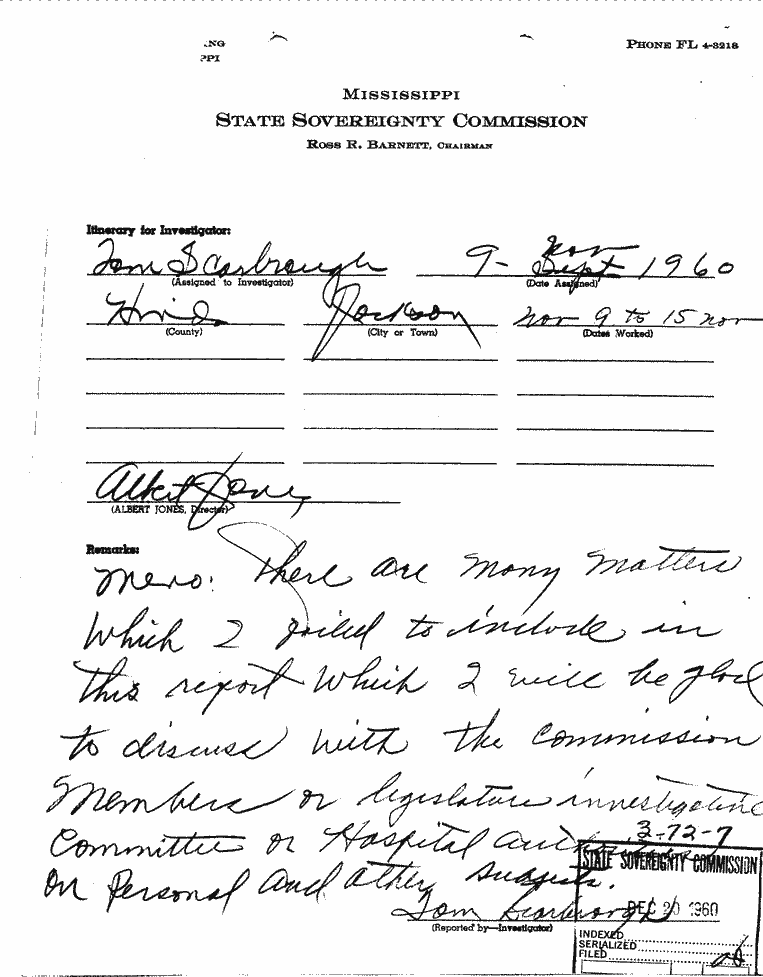 NG
PPI
PHONE FL 4-3218
MISSISSIPPI
STATE SOVEREIGNTY COMMISSION
ROSS R. BARNETT, CHAIRMAN
Itinerary for Investigator:
Tom Scarbrough 9- Nov Sept 1960
(Assigned to Investigator) (Date Assigned)
Hinds Jackson Nov 9 to 15 nov
(County) (City or Town) (Dates Worked)
Albert Jones
(ALBERT JONES, Director)
Remarks:
Memo: There are many matters
which I failed to include in
this report which I will be glad
to discuss with the Commission
Members or legislature investigative
Committee or Hospital
on Personal and other
3-72-7
STATE SOVEREIGNTY COMMISSION
Tom Scarbrough DEC 20 1960
(Reported by—Investigator)
INDEXED
SERIALIZED
FILED